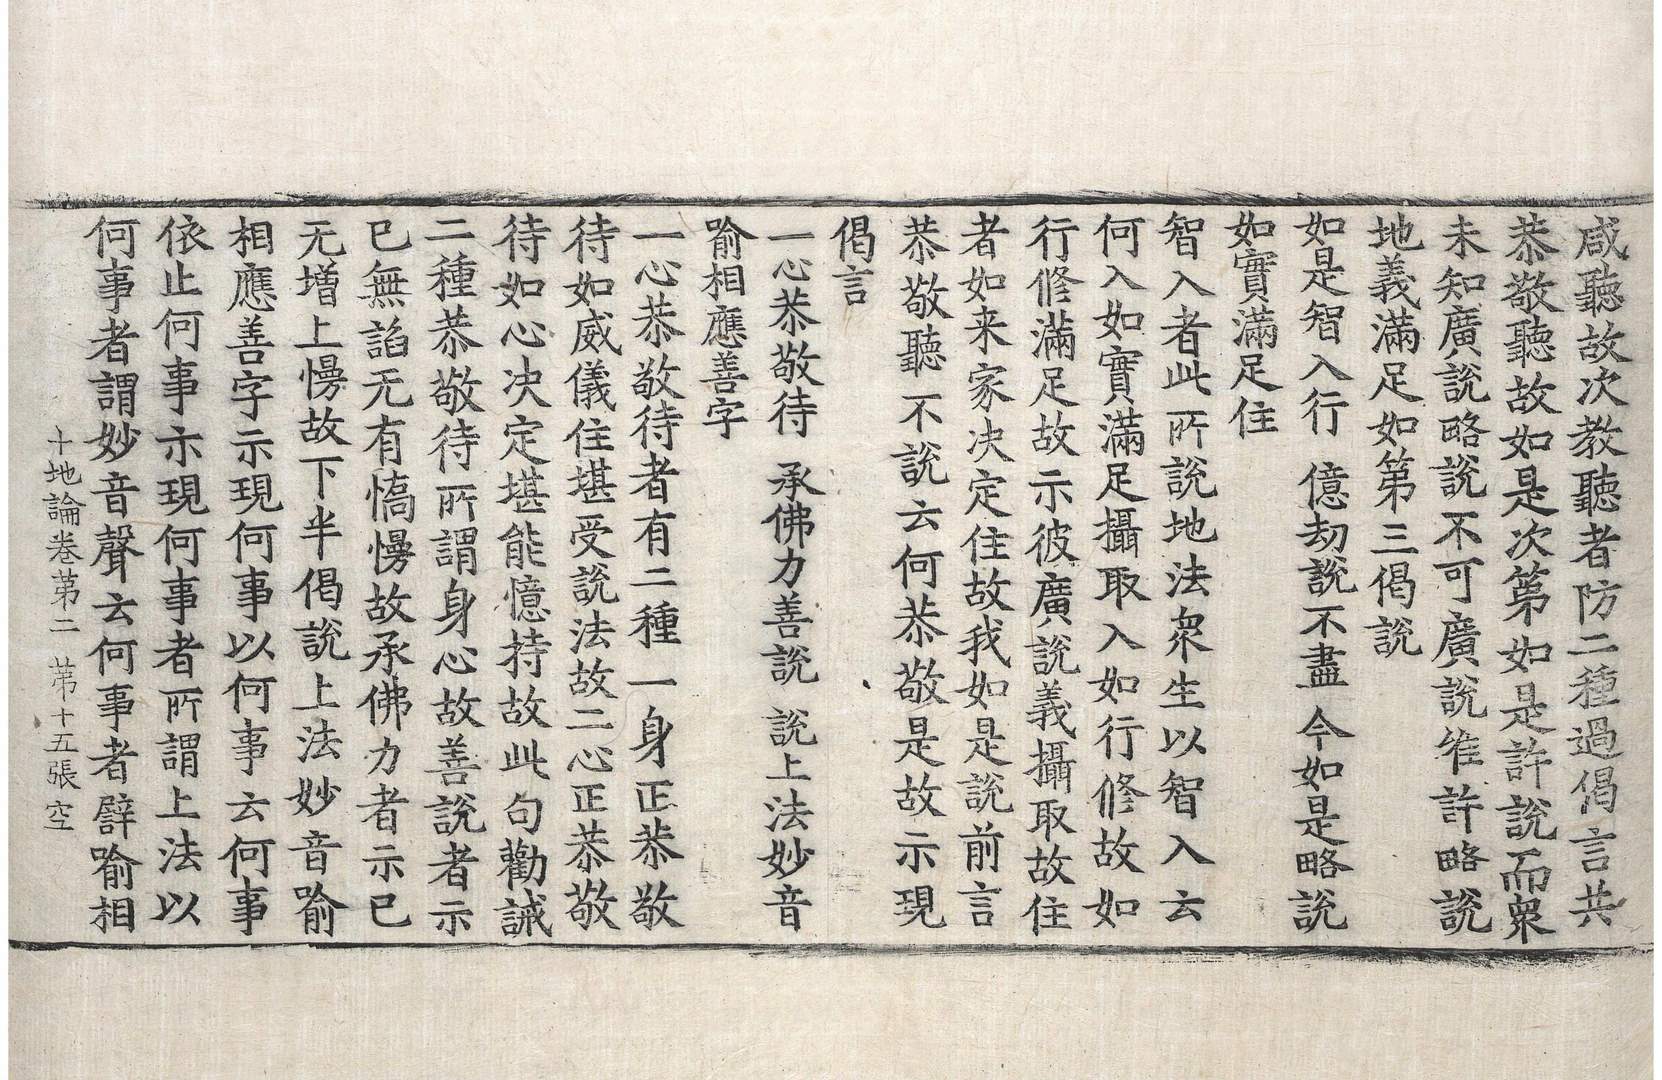 咸聽故次教聽者防二種過偈言共
恭敬聽故如是次第如是許說而衆
未知廣說略說不可廣說唯許略說
地義滿足如第三偈說
如是智入行 億劫說不盡 今如是略說
如實滿足住
智入者此所說地法衆生以智入云
何入如實滿足攝取入如行修故如
行修滿足故示彼廣說義攝取故住
者如来家决定住故我如是說前言
恭敬聽不說云何恭敬是故示現
偈言
一心恭敬待 承佛力善說 說上法妙音
喻相應善字
一心恭敬待者有二種一身正恭敬
待如威儀住堪受說法故二心正恭敬
待如心决定堪能憶持故此句勸誡
二種恭敬待所謂身心故善說者示
已無諂无有憍慢故承佛力者示已
无增上慢故下半偈說上法妙音喻
相應善字示現何事以何事云何事
依止何事示現何事者所謂上法以
何事者謂妙音聲云何事者譬喻相
十地論卷第二 第十五張 空